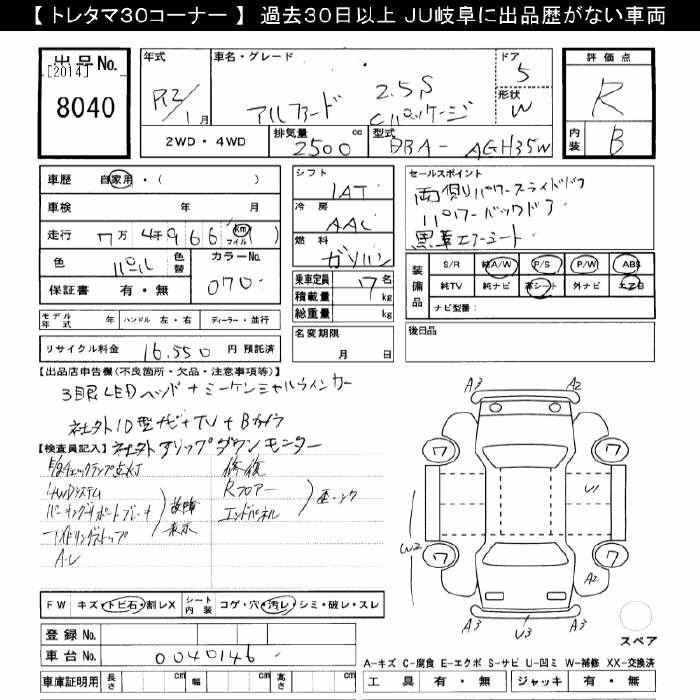 【トレタマ30コーナー】過去30日以上 JU岐阜に出品歴がない車両
出品No.
[2014]
8040
年式
R2/1月
車名・グレード
アルファード 2.5S Cパッケージ
ドア
5
形状
W
評価点
R
内装
B
2WD・4WD
排気量 cc
2500
型式
DBA- AGH35W
車歴 自家用・( )
車検 年 月
走行 7万4千966 km マイル( )
色 パール 色替
カラーNo. 070
保証書 有・無
モデル年式 年 ハンドル 左・右 ディーラー・並行
リサイクル料金 16,550 円 預託済
シフト
IAT
冷房
AAC
燃料
ガソリン
乗車定員 7 名
積載量 kg
総重量 kg
名変期限
月 日
セールスポイント
両側パワースライドドア
パワーバックドア
黒革エアーシート
装備品
S/R 純A/W P/S P/W ABS
純TV 純ナビ 革シート 外ナビ エアB
ナビ型番:
後日品
【出品店申告欄(不良箇所・欠品・注意事項等)】
3眼LEDヘッド+シーケンシャルウインカー
社外10型ナビ+TV+Bカメラ
【検査員記入】社外フリップダウンモニター
チェックランプ点灯
4WDシステム
パーキングサポートブレーキ
アイドリングストップ
故障表示
A-L
修復
Rフロアー
エンドパネル
歪・ク
FW キズ・トビ石・割レX
シート内装 コゲ・穴・汚レ・シミ・破レ・スレ
登録No.
車台No. 0040146
車庫証明用 長さ cm 幅 cm 高さ cm
A3 A2
ワ ワ
U1
W2
ワ ワ
A2
A3 U3 A3
スペア
A-キズ C-腐食 E-エクボ S-サビ U-凹ミ W-補修 XX-交換済
工具 有・無 ジャッキ 有・無